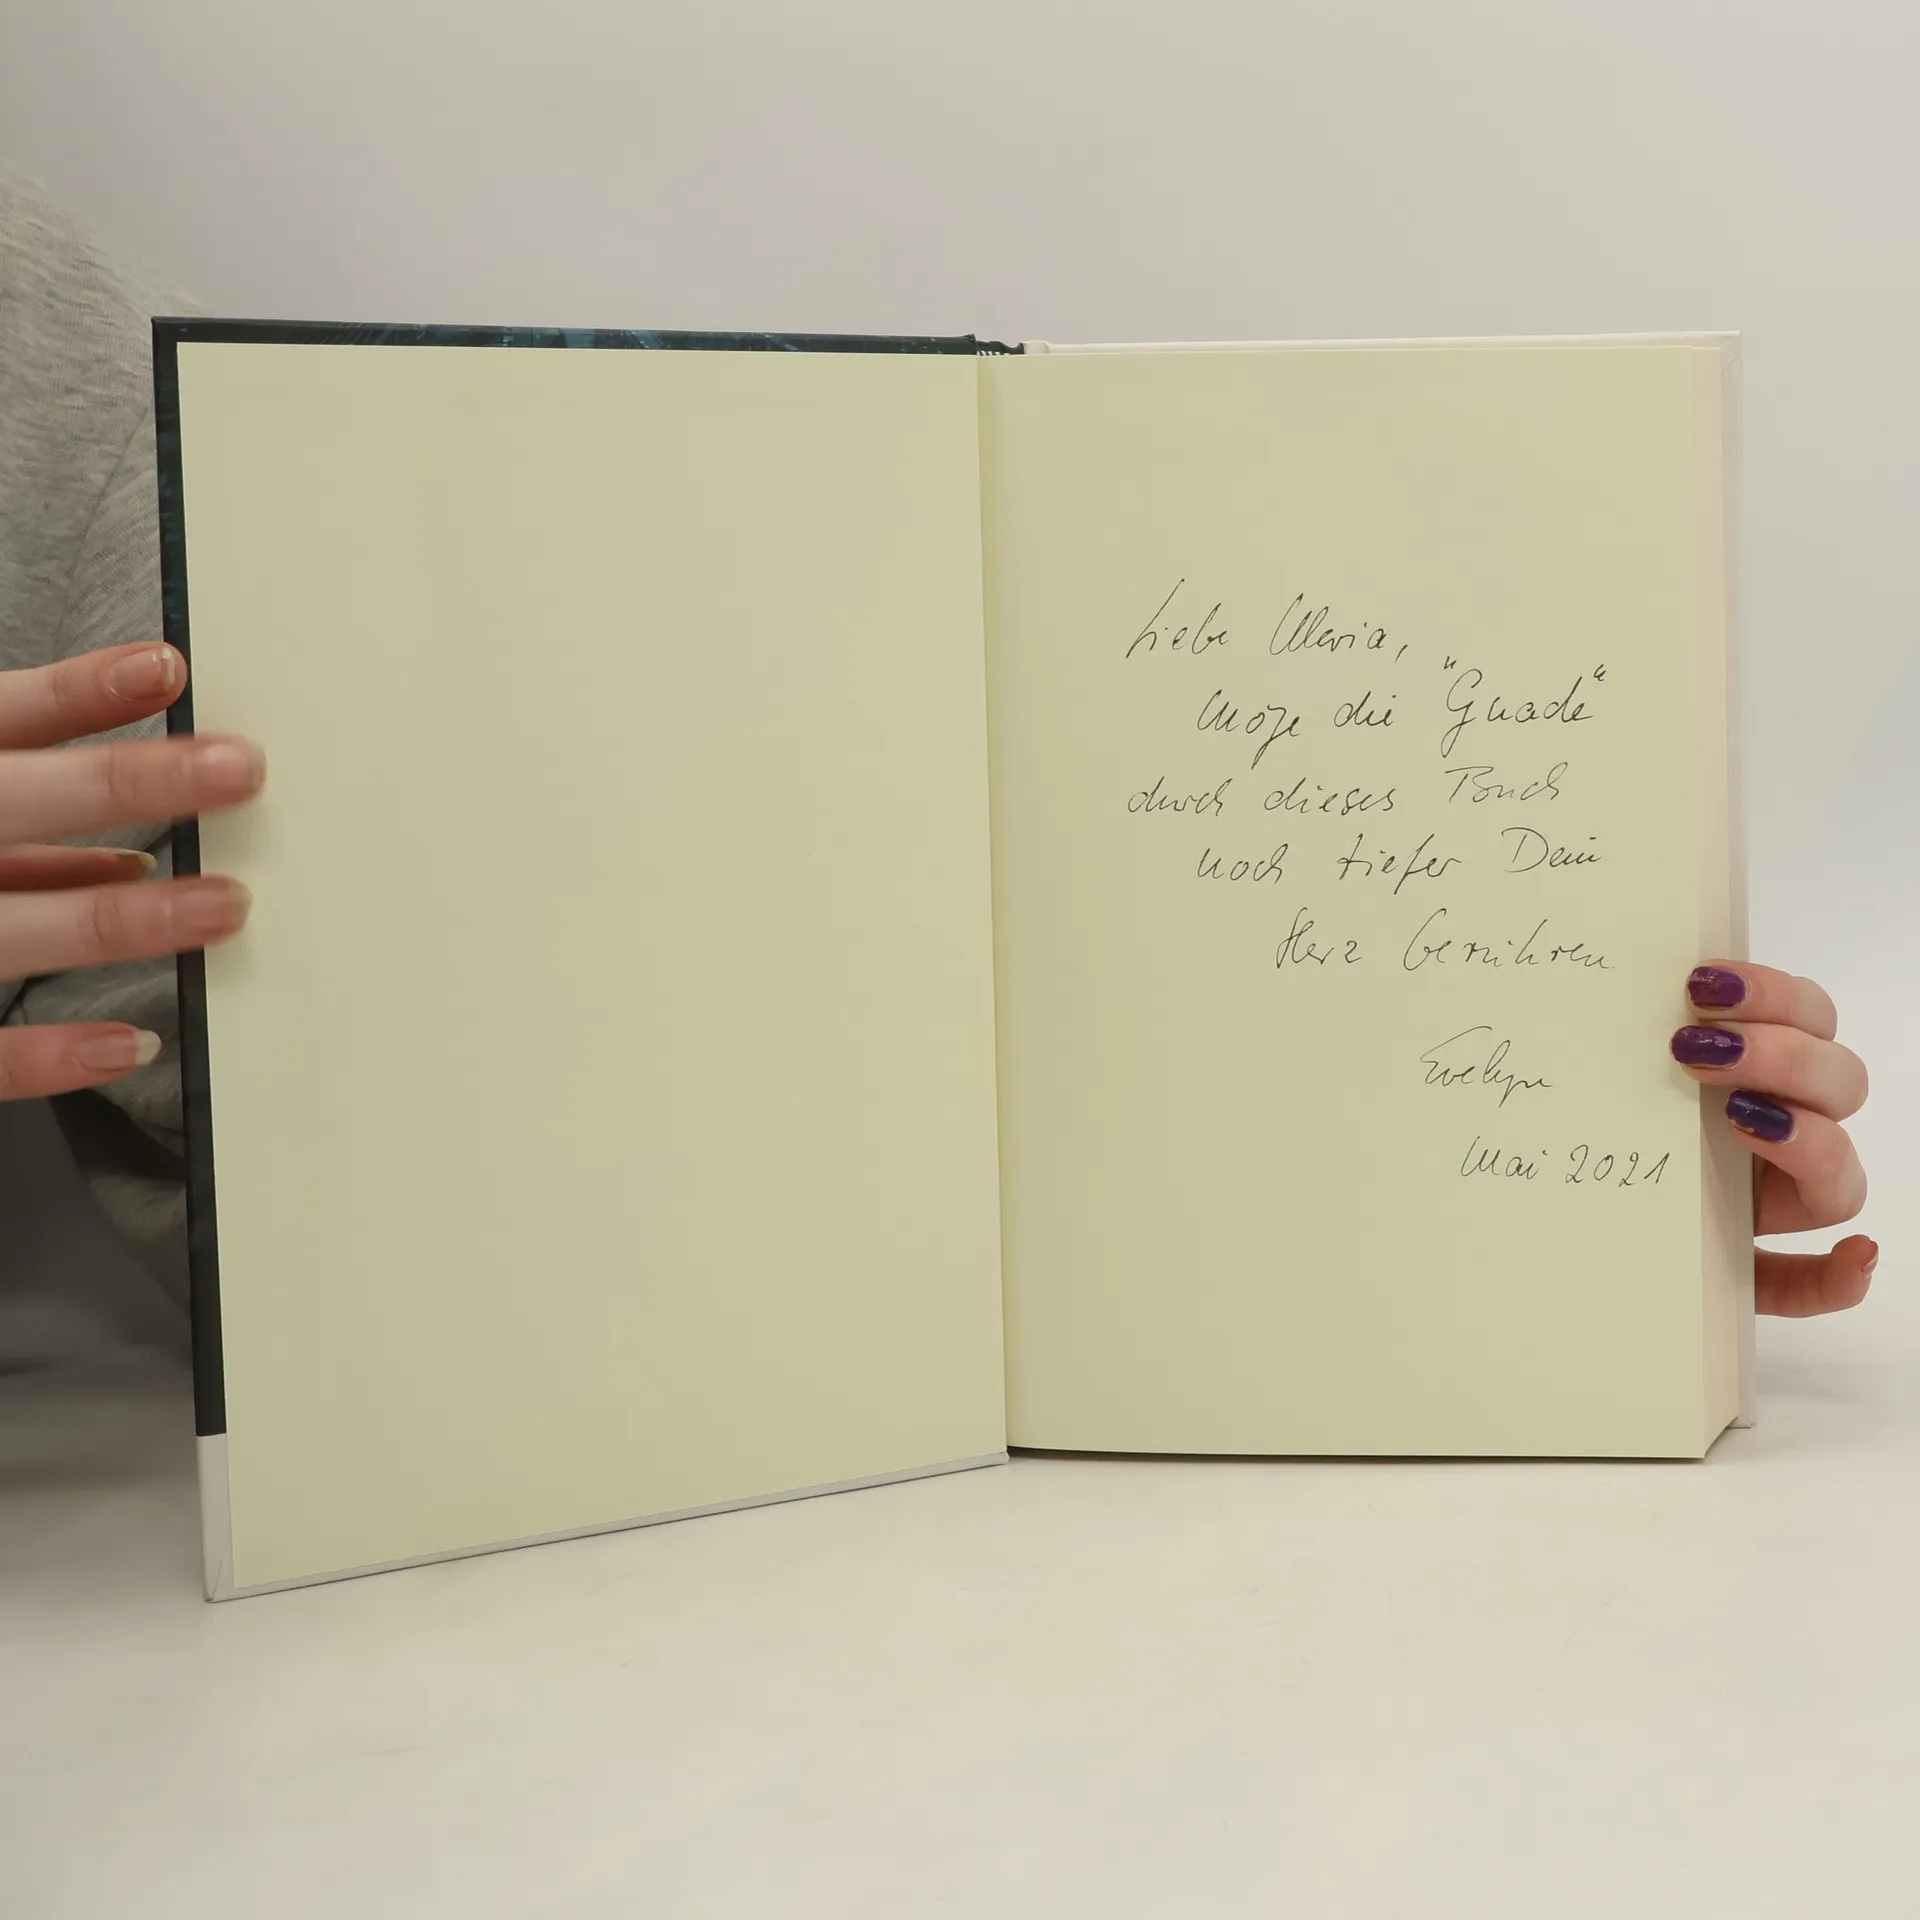 Liebe Maria,
möge die "Gnade"
durch dieses Buch
noch tiefer Dein
Herz berühren
Evelyn
Mai 2021